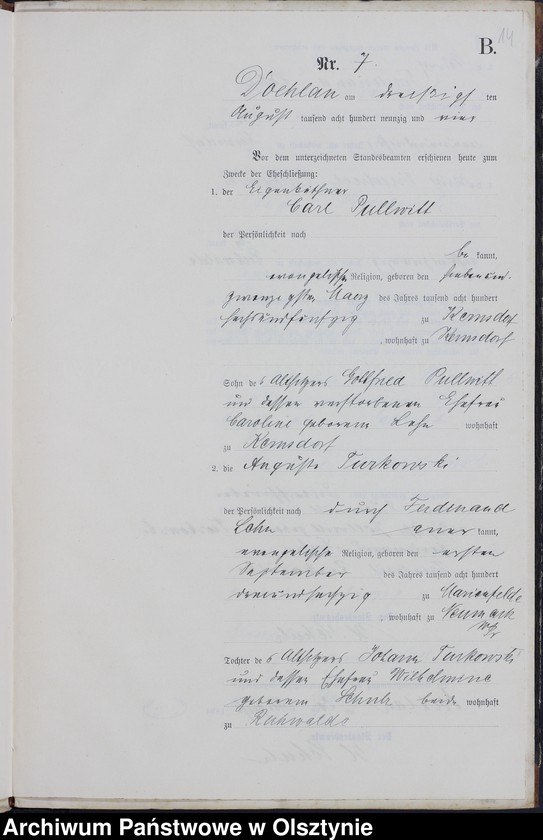 B.
14
Nr. 7.
Doehlau am dreißigsten
August tausend acht hundert neunzig und vier
Vor dem unterzeichneten Standesbeamten erschienen heute zum
Zwecke der Eheschließung:
1. der Eigenkäthner
Carl Pullwitt
der Persönlichkeit nach
be kannt,
evangelischer Religion, geboren den siebenund-
zwanzigsten März des Jahres tausend acht hundert
sechsundfünfzig zu Kernsdorf
, wohnhaft zu Kernsdorf
Sohn des Altsitzers Gottfried Pullwitt
und dessen verstorbenen Ehefrau
Caroline geborenen wohnhaft
zu Kernsdorf
2. die Auguste Turkowski
der Persönlichkeit nach durch Ferdinand
aner kannt,
evangelische Religion, geboren den ersten
September des Jahres tausend acht hundert
dreiundsechzig zu Marienfelde
wohnhaft zu Neumark
Tochter des Altsitzers Johann Turkowski
und dessen Ehefrau Wilhelmine
geborenen Schulz beide wohnhaft
zu
Archiwum Państwowe w Olsztynie